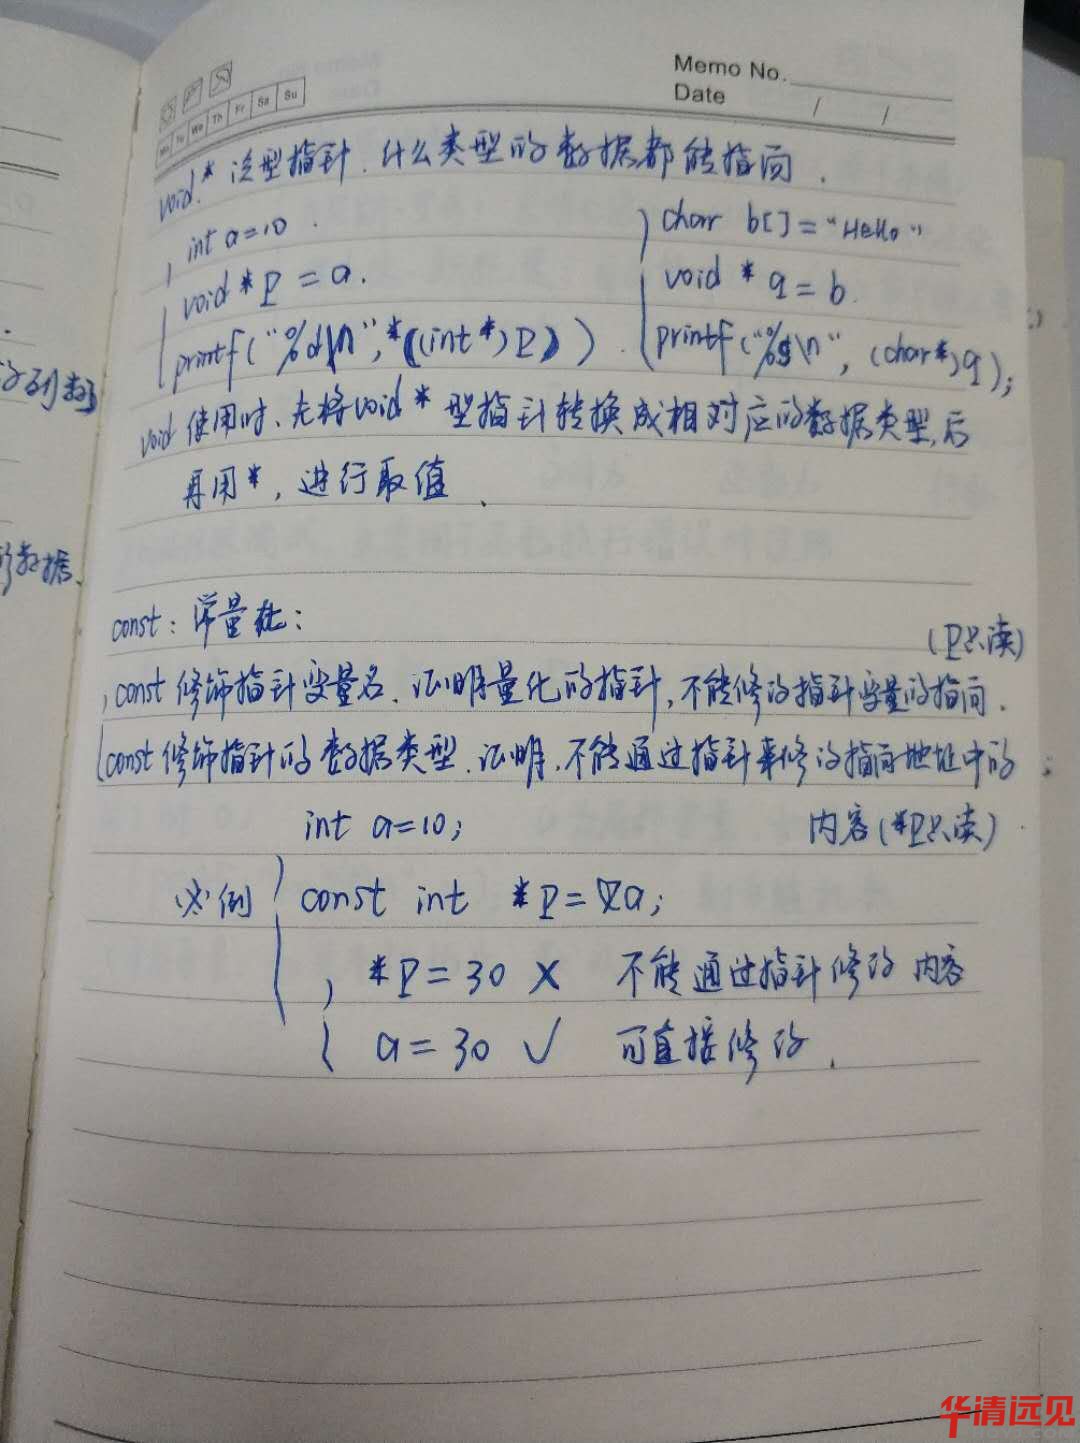 Memo No.
Date / /
Mo Tu We Th Fr Sa Su
void* 泛型指针.什么类型的数据都能指向.
int a=10.
void *P = a.
printf("%d\n",*((int*)P)).
char b[]="Hello"
void * q = b.
printf("%s\n", (char*)q);
void 使用时、先将void * 型指针转换成相对应的数据类型,后
再用*, 进行取值、
const: 常量化:
(P只读)
const 修饰指针变量名、证明常量化的指针,不能修改指针变量的指向.
const 修饰指针的数据类型、证明、不能通过指针来修改指向地址中的
内容(*P只读)
int a=10;
示例
const int *P=&a;
*P=30 × 不能通过指针修改内容
a=30 ✓ 可直接修改.
的数据、
华清远见